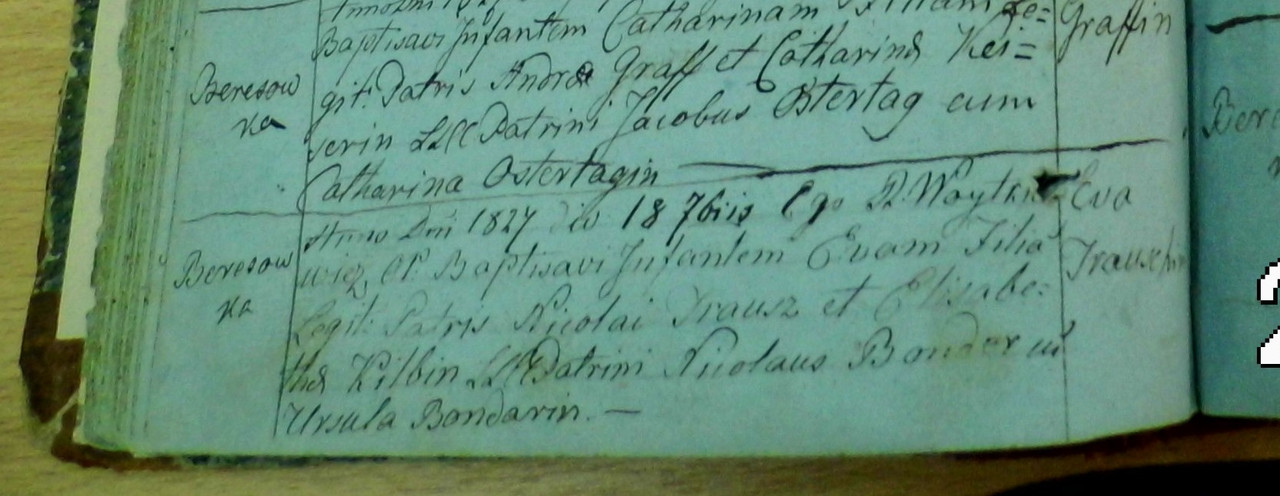 Baptisavi Infantem Catharinam Filiam Le=
Graffin
Beresow
ka
git: Patris Andreæ Graff et Catharinæ Kei=
serin LLCC Patrini Jacobus Ostertag cum
Catharina Ostertagin
Beresow
ka
Anno Dni 1827 die 18 7bris Ego P. Woytkie
wicz, CP. Baptisavi Infantem Evam Filiā
Legit: Patris Nicolai Trausz et Elisabe:
thæ Kilbin LLCC Patrini Nicolaus Bonder cū
Ursula Bondarin. —
Eva
Bere
2